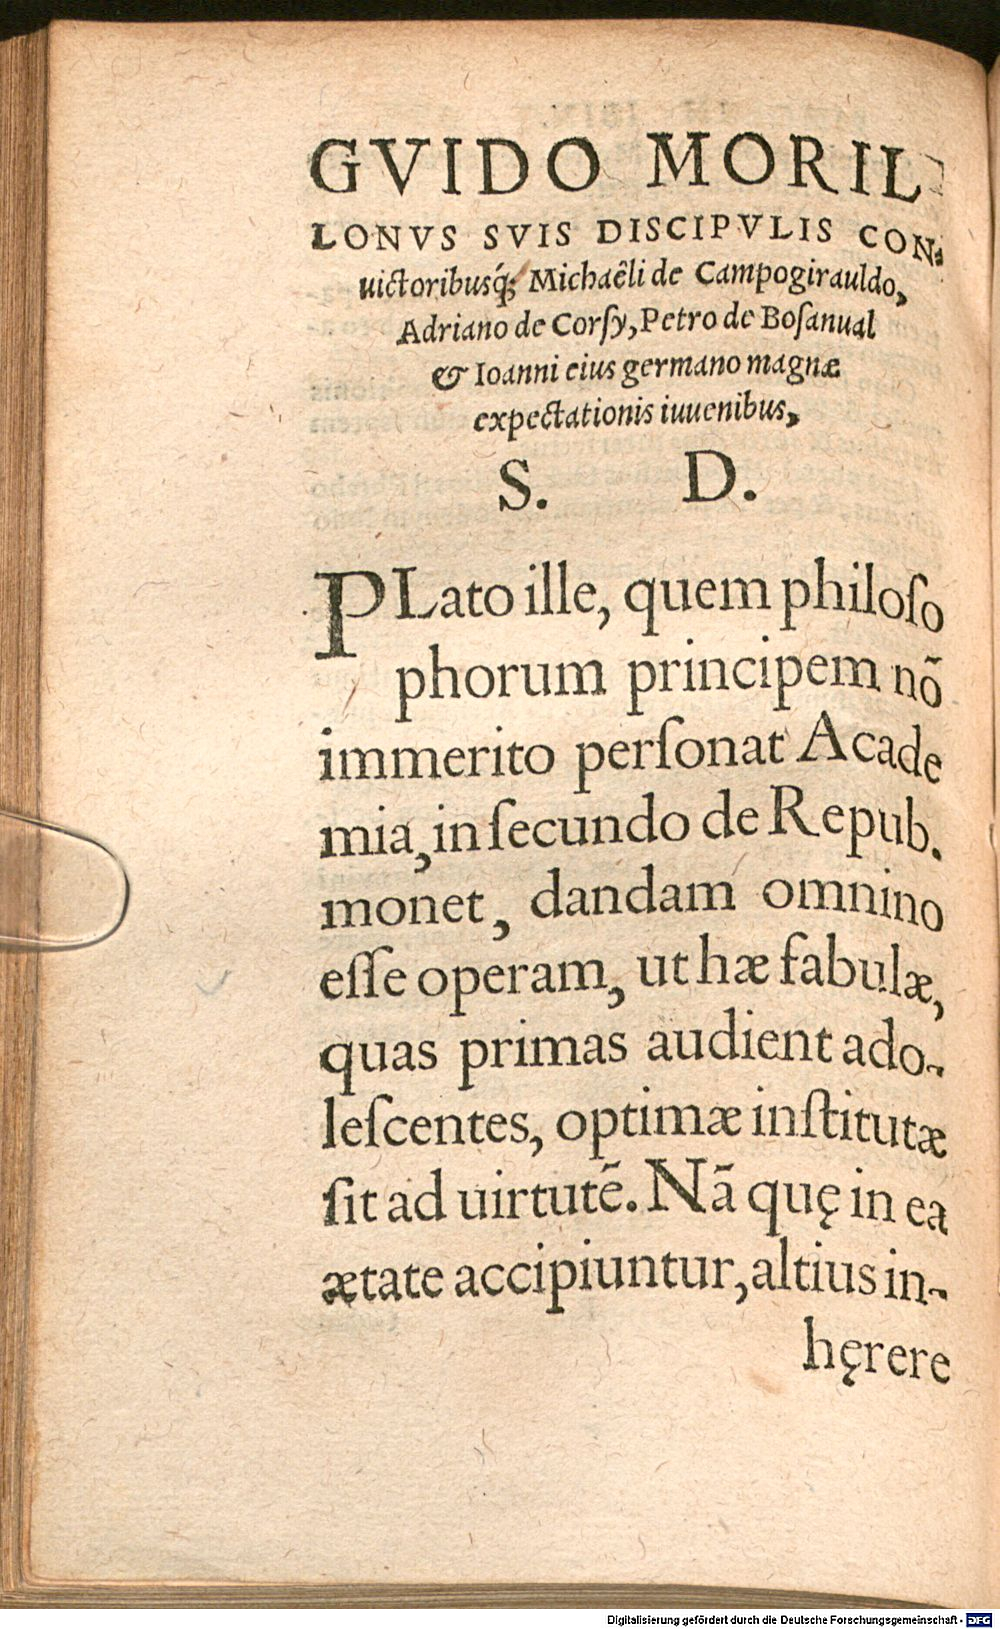 GVIDO MORIL
LONVS SVIS DISCIPVLIS CON-
uictoribusq́; Michaêli de Campogirauldo,
Adriano de Corſy, Petro de Boſanual
& Ioanni eius germano magnæ
expectationis iuuenibus,
S. D.
PLato ille, quem philoſo
phorum principem nõ
immerito perſonat Acade
mia, in ſecundo de Repub.
monet, dandam omnino
eſſe operam, ut hæ fabulæ,
quas primas audient ado-
leſcentes, optimæ inſtitutæ
ſit ad uirtutẽ. Nã quę in ea
ætate accipiuntur, altius in-
hęrere
Digitalisierung gefördert durch die Deutsche Forschungsgemeinschaft - DFG